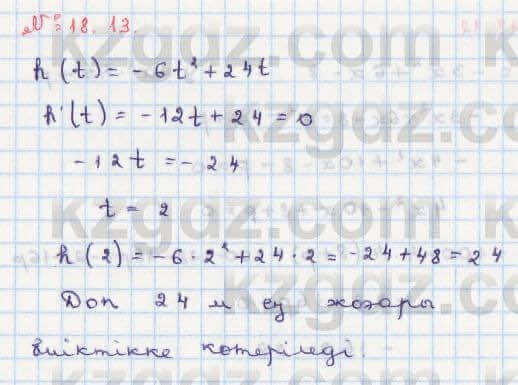 № 18. 13.
h(t) = - 6t² + 24t
h'(t) = - 12t + 24 = 0
- 12t = - 24
t = 2
h(2) = - 6 · 2² + 24 · 2 = - 24 + 48 = 24
Доп 24 м ең жоғары
биіктікке көтеріледі.
kzgdz.com